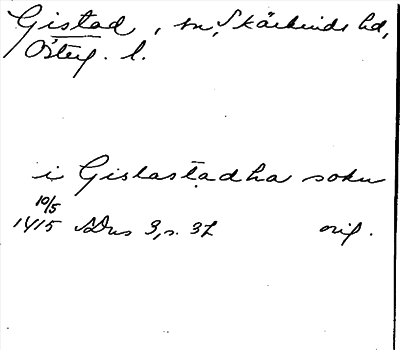 Gistad, sn, Skärkinds hd,
Österg. l.
i Gislastadha sokn
10/5
1415 SDns 3, s. 32 orig.